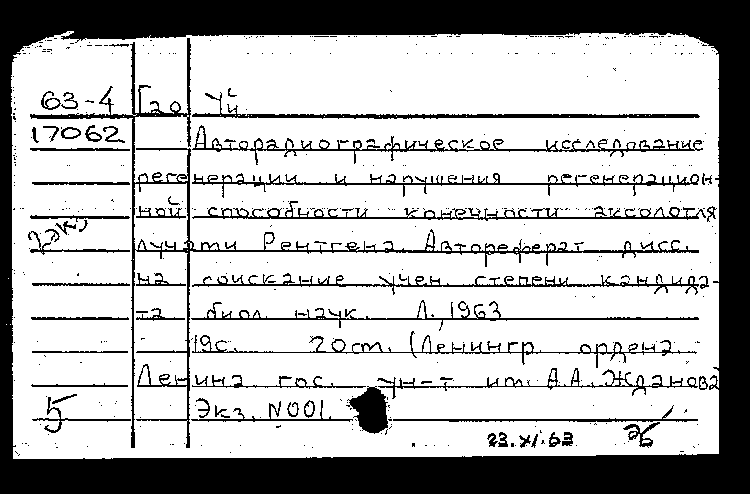 63-4 Гао Уй
17062 Авторадиографическое исследование
регенерации и нарушения регенерацион-
ной способности конечности аксолотля
2 экз
лучами Рентгена. Автореферат дисс.
на соискание учен. степени кандида-
та биол. наук. Л., 1963
19с. 20см. (Ленингр. ордена
Ленина гос. ун-т им. А.А. Жданова
5 Экз. N001.
23.XI.63